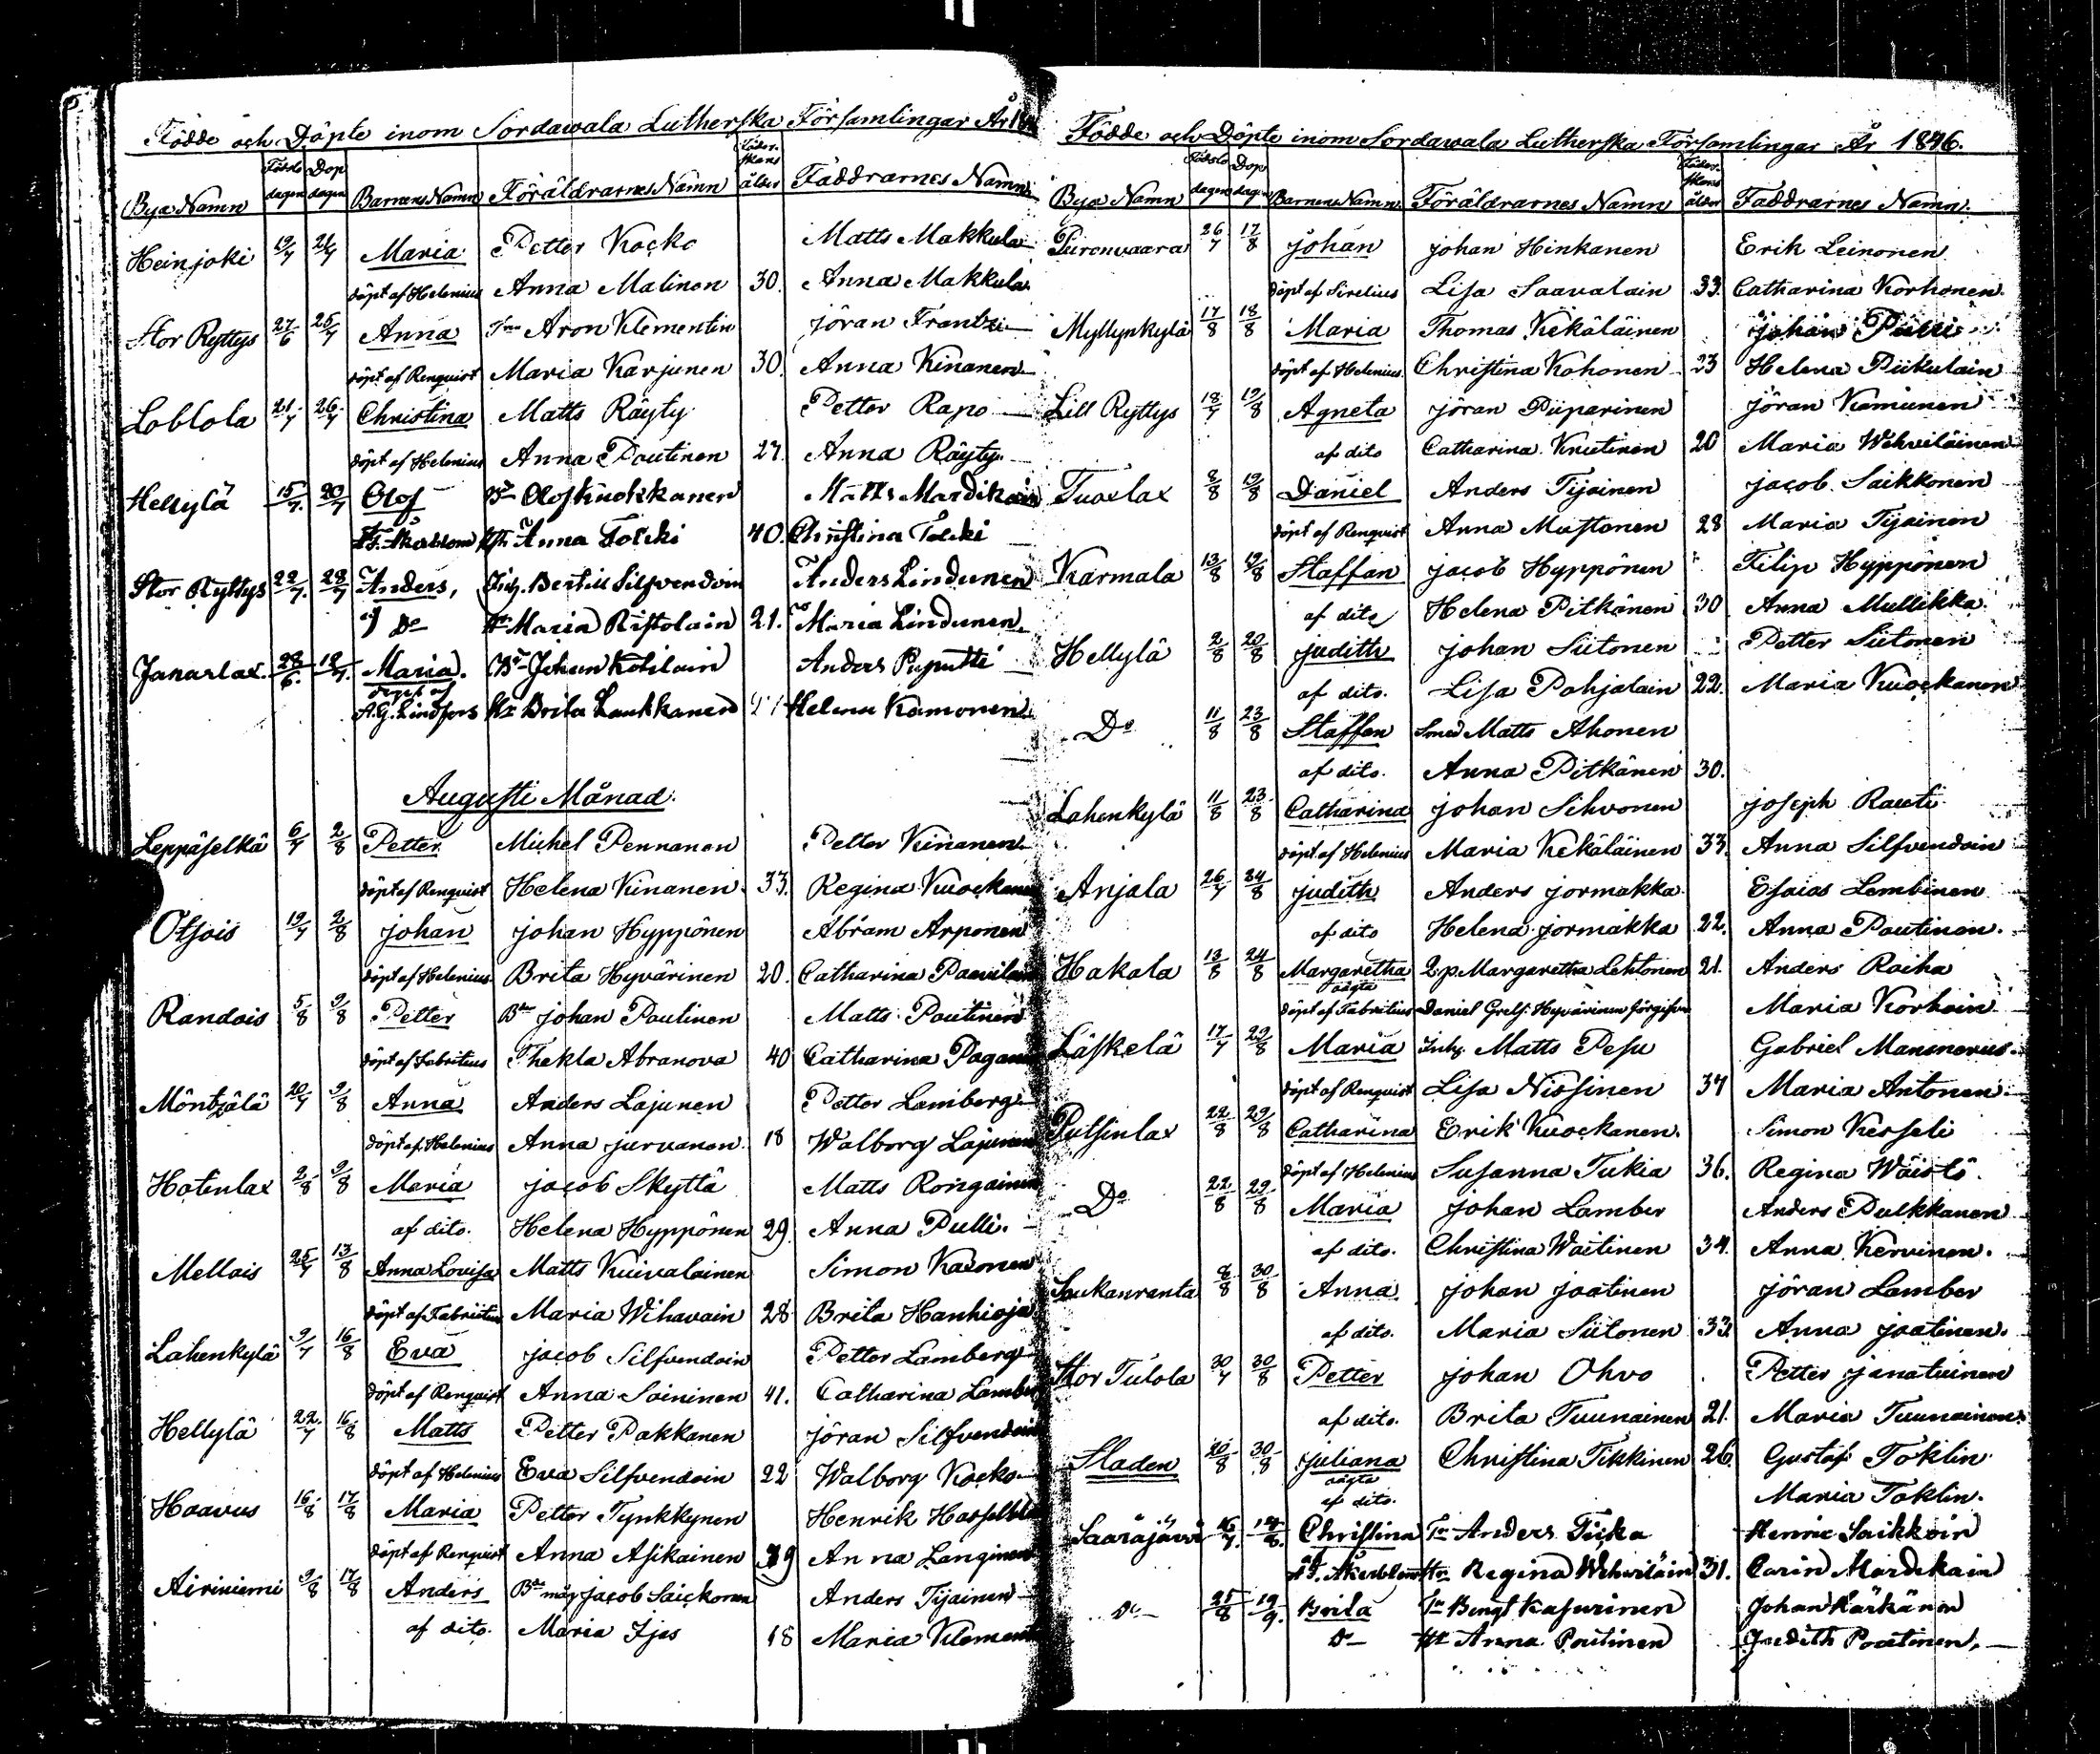 Födde och Döpte inom Sordawala Lutherska Församlingar År
Bya Namn Födelse dagen Dop dagen Barnens Namn Föräldrarnes Namn ålder Faddrarnes Namn
Heinjoki 19/7 21/7 Maria Petter Kocko Matts Makkula
döpt af Helenius Anna Malinen 30. Anna Makkula
Stor Ryttys 27/6 25/7 Anna Aron Klementin jöran Frantsi
döpt af Renquist Maria Karjunen 30. Anna Kinanen
Loblola 21/7 26/7 Christina Matts Räyty Petter Rapo
döpt af Helenius Anna Poutinen 27. Anna Räyty
Hellylä 15/7 20/7 Olof Olof Kuokkanen Matts Mardikain
Anna Tolcki 40. Christina Tolcki
Stor Ryttys 22/7 28/7 Anders, Inh. Bertill Silfvendoin Anders Lindunen
af Do Maria Ristolain 21. Maria Lindunen
Janaslax 28/6 12/7 Maria. Johan Kotilain Anders Puputti
döpt af A.G. Lindfors Brita Laukkanen Helena Kamonen
Augusti Månad.
Leppäselkä 6/7 2/8 Petter Michel Pennanen Petter Kinanen
döpt af Renquist Helena Kinanen 33. Regina Kuockanen
Otsois 19/7 2/8 johan johan Hyppönen Abram Arponen
döpt af Helenius Brita Hyvärinen 20. Catharina
Randois 5/8 9/8 Petter Bn johan Poutinen Matts Poutinen
döpt af Fabritius Thekla Abranova 40 Catharina
Möntsölä 20/7 9/8 Anna Anders Lajunen Petter Lamberg
döpt af Helenius Anna jurvanen 18 Walborg Lajunen
Hotinlax 2/8 9/8 Maria jacob Skyttä Matts Rongainen
af dito. Helena Hyppönen 29. Anna Pulli.
Mellois 25/7 13/8 Anna Lovisa Matts Kuivalainen Simon Kasonen
döpt af Fabritius Maria Wihavain 28 Brita Hanhioja
Lahenkylä 9/7 16/8 Eva jacob Silfvendoin Petter Lamberg
döpt af Renquist Anna Soininen 41. Catharina Lamberg
Hellylä 22/7 16/8 Matts Petter Pakkanen jöran Silfvendoin
döpt af Helenius Eva Silfvendoin 22 Walborg Kocko
Haavus 16/8 17/8 Maria Petter Tynkkynen Henrik
döpt af Renquist Anna Asikainen 39 Anna Langinen
Airiniemi 9/8 17/8 Anders Bn måg jacob Saickonen Anders Tijainen
af dito. Maria Ijes 18 Maria
Födde och Döpte inom Sordawala Lutherska Församlingar År 1846.
Bya Namn Födelse dagen Dop dagen Barnens Namn Föräldrarnes Namn ålder Faddrarnes Namn.
Piironvaara 26/7 17/8 johan johan Hinkanen Erik Leinonen
döpt af Sirelius Lisa Saavalain 33. Catharina Korhonen.
Myllynkylä 17/8 18/8 Maria Thomas Kekäläinen johan
döpt af Helenius Christina Kohonen 23 Helena Piikulain
Lill Ryttys 18/7 19/8 Agneta jöran Piiparinen jöran Kamunen
af dito Catharina Knutinen 20 Maria Wehviläinen
Tuoslax 8/8 19/8 Daniel Anders Tijainen jacob Saikkonen
döpt af Renquist Anna Mustonen 28 Maria Tijainen
Karmala 13/8 19/8 Staffan jacob Hyppönen Filip Hyppönen
af dito Helena Pitkänen 30 Anna Mullikka
Hellylä 2/8 20/8 judith johan Siitonen Petter Siitonen
af dito. Lisa Pohjolain 22. Maria Kuockanen
Do 11/8 23/8 Staffan Smed Matts Ahonen
af dito. Anna Pitkänen 30.
Lahenkylä 11/8 23/8 Catharina johan Sihvonen joseph Rauti
döpt af Helenius Maria Kekäläinen 33. Anna Silfvendoin
Anjala 26/7 24/8 judith Anders jormakka Esaias Lembinen
af dito Helena jormakka 22. Anna Poutinen.
Hakala 13/8 24/8 Margaretha Margaretha Lehtonen 21. Anders Raiha
oägta
döpt af Fabritius Daniel Hyvärinen Maria Korhoin
Läskelä 17/7 29/8 Maria Inhy. Matts Pesu Gabriel
döpt af Renquist Lisa Nissinen 34 Maria Antonen
Putsinlax 22/8 29/8 Catharina Erik Kuockanen. Simon Kesseli
döpt af Helenius Susanna Tukia 36. Regina Wäistö
Do 22/8 29/8 Maria johan Lamber Anders Pulkkanen
af dito. Christina Waitinen 34. Anna Kervinen.
Laukanranta 8/8 30/8 Anna johan jaatinen jöran Lamber
af dito. Maria Siitonen 33. Anna jaatinen.
Stor Tulola 30/7 30/8 Petter johan Ohvo Petter janatuinen
af dito. Brita Tuunainen 21. Maria Tuunainen
Staden 20/8 30/8 juliana Christina Tikkinen 26. Gustaf Toklin
oägta
af dito. Maria Toklin.
Saarajärvi 16/7 Christina Anders Tiika Henric Saikkoin
Åkerblom Regina Wehviläin 31. Carin Mardikain
Do 25/8 19/9 Brita Bengt Kasurinen Johan Kärkänen
Do Anna Poutinen Judith Poutinen,